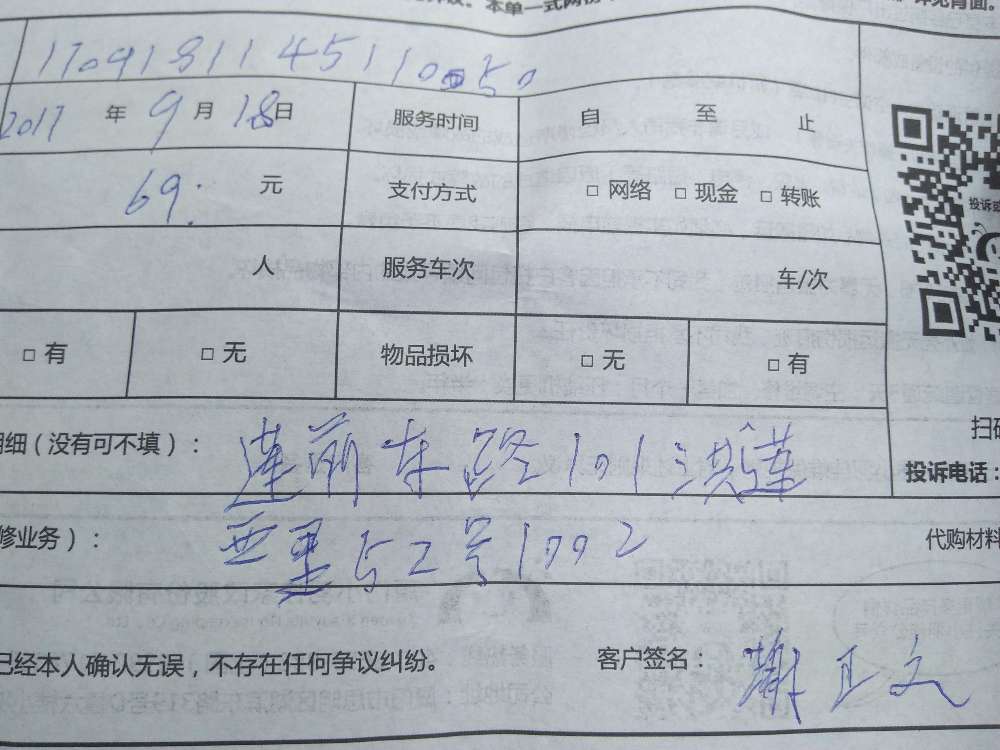 本单一式两份
详见背面。
170918114511050
2017 年 9 月 18 日 服务时间 自 至 止
69. 元 支付方式 □ 网络 □ 现金 □ 转账
投诉或
人 服务车次 车/次
□ 有 □ 无 物品损坏 □ 无 □ 有
明细（没有可不填）： 莲前东路101洪莲
扫码
投诉电话：
修业务）： 西里52号1002
代购材料
已经本人确认无误，不存在任何争议纠纷。 客户签名： 谢正文